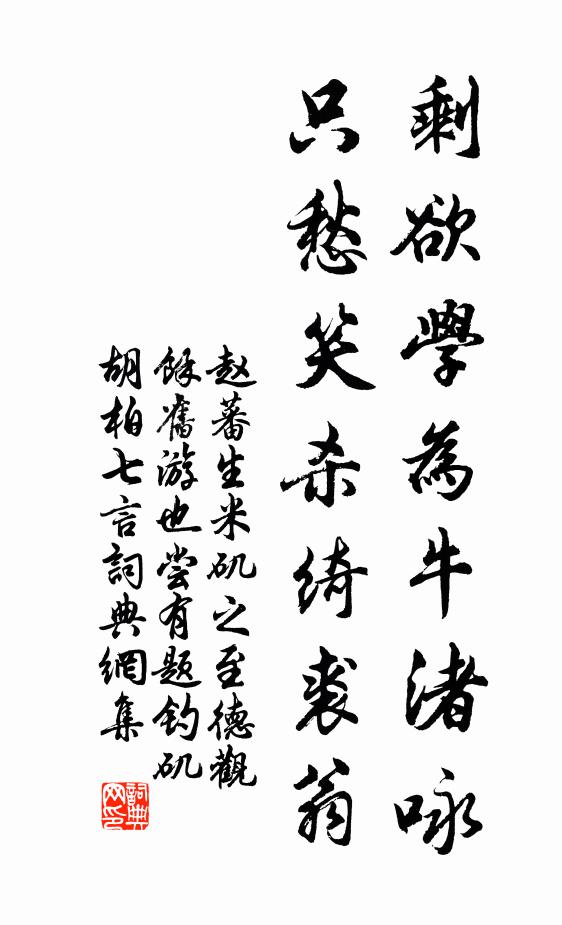 剩欲學為牛渚咏
只愁笑杀綺裘翁
赵蕃生米矶之至德觀
餘舊游也尝有题钓矶
胡柏七言詞典網集
詞典网印